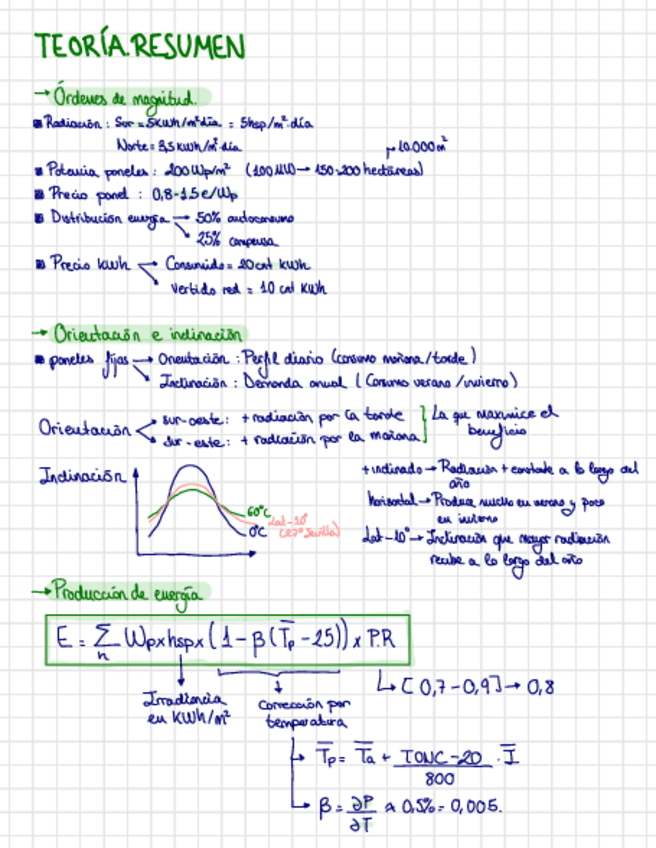 TEORÍA.RESUMEN
→ Órdenes de magnitud.
Radiación : Sur = 5kWh/m²día = 5hsp/m².día
Norte = 3,5 kWh/m².día
→ 10.000 m²
Potencia paneles : 200 Wp/m² (100 MW → 150-200 hectáreas)
Precio panel : 0,8-1.5 €/Wp
Distribución energía → 50% autoconsumo
→ 25% compensa
Precio kWh → Consumido = 20 cnt kWh
→ Vertido red = 10 cnt kWh
→ Orientación e inclinación
paneles fijas → Orientación : Perfil diario (consumo mañana/tarde)
→ Inclinación : Demanda anual (Consumo verano/invierno)
Orientación
sur-oeste: + radiación por la tarde
sur-este: + radiación por la mañana
La que maximice el
beneficio
Inclinación
60°C
Lat-10°
(27° Sevilla)
0°C
+ inclinado → Radiación + constante a lo largo del
año
horizontal → Produce mucho en verano y poco
en invierno
Lat-10° → Inclinación que mayor radiación
recibe a lo largo del año
→ Producción de energía
E = Σ Wp x hsp x (1 - β (T̅p - 25)) x PR
n
↳ [0,7 - 0,9] → 0,8
Irradiancia
en KWh/m²
Corrección por
temperatura
T̅p = T̅a + TONC-20 / 800 · I̅
β = ∂P/∂T ≈ 0,5% = 0,005.